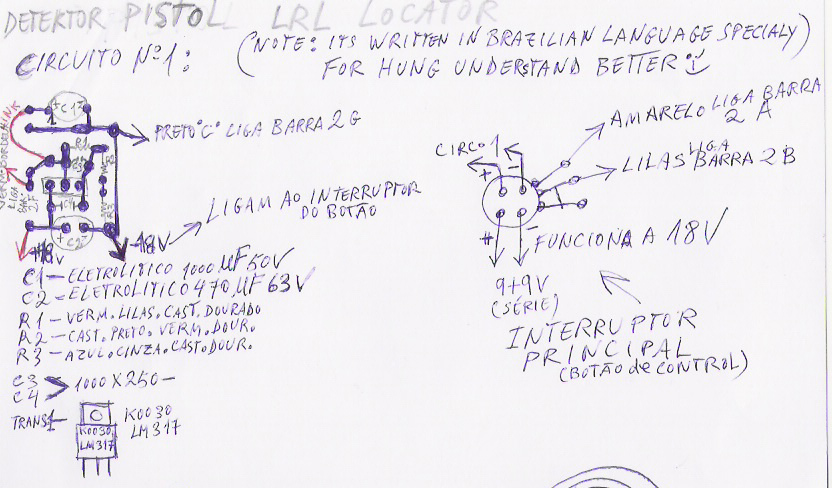 DETEKTOR PISTOL LRL LOCATOR
CIRCUITO Nº1:
(NOTE: ITS WRITTEN IN BRAZILIAN LANGUAGE SPECIALY)
FOR HUNG UNDERSTAND BETTER :)
C1
PRETO "C" LIGA BARRA 2G
R1
C2
-18V
LIGAM AO INTERRUPTOR
DO BOTÃO
C1 - ELETROLITICO 1000 µF 50V
C2 - ELETROLITICO 470 µF 63V
R1 - VERM. LILAS. CAST. DOURADO
R2 - CAST. PRETO. VERM. DOUR.
R3 - AZUL. CINZA. CAST. DOUR.
C3
C4 > 1000 X 250 -
TRANS1 -
K0030
LM317
K0030
LM317
CIRCO 1
+ -
AMARELO LIGA BARRA
2 A
LILAS LIGA BARRA 2B
# -
FUNCIONA A 18V
9+9V
(SÉRIE)
INTERRUPTOR
PRINCIPAL
(BOTÃO de CONTROL)